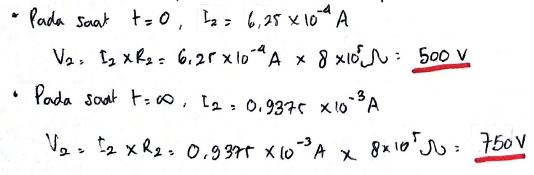 • Pada saat t = 0, I₂ = 6,25 × 10⁻⁴ A
V₂ = I₂ × R₂ = 6,25 × 10⁻⁴ A × 8 × 10⁵ Ω = 500 V
• Pada saat t = ∞, I₂ = 0,9375 × 10⁻³ A
V₂ = I₂ × R₂ = 0,9375 × 10⁻³ A × 8 × 10⁵ Ω = 750 V